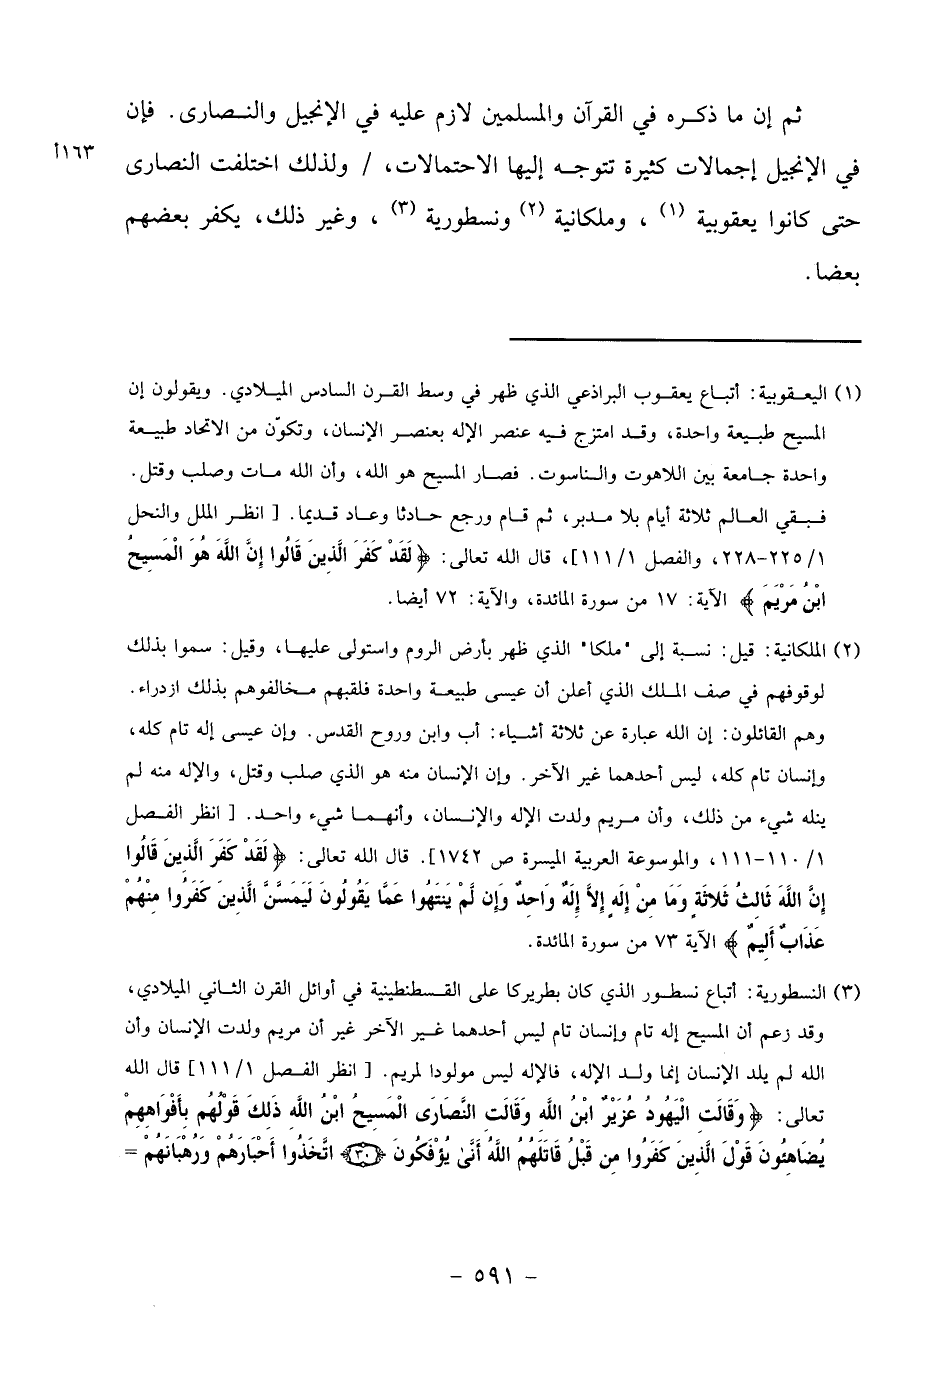 ثم إن ما ذكره في القرآن والمسلمين لازم عليه في الإنجيل والنصارى. فإن
في الإنجيل إجمالات كثيرة تتوجه إليها الاحتمالات، / ولذلك اختلفت النصارى
١٦٣أ
حتى كانوا يعقوبية (١) ، وملكانية (٢) ونسطورية (٣) ، وغير ذلك، يكفر بعضهم
بعضا.
(١) اليعقوبية: أتباع يعقوب البراذعي الذي ظهر في وسط القرن السادس الميلادي. ويقولون إن
المسيح طبيعة واحدة، وقد امتزج فيه عنصر الإله بعنصر الإنسان، وتكوّن من الاتحاد طبيعة
واحدة جامعة بين اللاهوت والناسوت. فصار المسيح هو الله، وأن الله مات وصلب وقتل.
فبقي العالم ثلاثة أيام بلا مدبر، ثم قام ورجع حادثا وعاد قديما. [ انظر الملل والنحل
١/ ٢٢٥-٢٢٨، والفصل ١/ ١١١]، قال الله تعالى: ﴿ لَقَدْ كَفَرَ الَّذِينَ قَالُوا إِنَّ اللَّهَ هُوَ الْمَسِيحُ
ابْنُ مَرْيَمَ ﴾ الآية: ١٧ من سورة المائدة، والآية: ٧٢ أيضا.
(٢) الملكانية: قيل: نسبة إلى "ملكا" الذي ظهر بأرض الروم واستولى عليها، وقيل: سموا بذلك
لوقوفهم في صف الملك الذي أعلن أن عيسى طبيعة واحدة فلقبهم مخالفوهم بذلك ازدراء.
وهم القائلون: إن الله عبارة عن ثلاثة أشياء: أب وابن وروح القدس. وإن عيسى إله تام كله،
وإنسان تام كله، ليس أحدهما غير الآخر. وإن الإنسان منه هو الذي صلب وقتل، والإله منه لم
ينله شيء من ذلك، وأن مريم ولدت الإله والإنسان، وأنهما شيء واحد. [ انظر الفصل
١/ ١١٠-١١١، والموسوعة العربية الميسرة ص ١٧٤٢]. قال الله تعالى: ﴿ لَقَدْ كَفَرَ الَّذِينَ قَالُوا
إِنَّ اللَّهَ ثَالِثُ ثَلاثَةٍ وَمَا مِنْ إِلَهٍ إِلاَّ إِلَهٌ وَاحِدٌ وَإِن لَّمْ يَنتَهُوا عَمَّا يَقُولُونَ لَيَمَسَّنَّ الَّذِينَ كَفَرُوا مِنْهُمْ
عَذَابٌ أَلِيمٌ ﴾ الآية ٧٣ من سورة المائدة.
(٣) النسطورية: أتباع نسطور الذي كان بطريركا على القسطنطينية في أوائل القرن الثاني الميلادي،
وقد زعم أن المسيح إله تام وإنسان تام ليس أحدهما غير الآخر غير أن مريم ولدت الإنسان وأن
الله لم يلد الإنسان إنما ولد الإله، فالإله ليس مولودا لمريم. [ انظر الفصل ١/ ١١١] قال الله
تعالى: ﴿ وَقَالَتِ الْيَهُودُ عُزَيْرٌ ابْنُ اللَّهِ وَقَالَتِ النَّصَارَى الْمَسِيحُ ابْنُ اللَّهِ ذَلِكَ قَوْلُهُم بِأَفْوَاهِهِمْ
يُضَاهِئُونَ قَوْلَ الَّذِينَ كَفَرُوا مِن قَبْلُ قَاتَلَهُمُ اللَّهُ أَنَّىٰ يُؤْفَكُونَ ﴿٣٠﴾ اتَّخَذُوا أَحْبَارَهُمْ وَرُهْبَانَهُمْ =
- ٥٩١ -